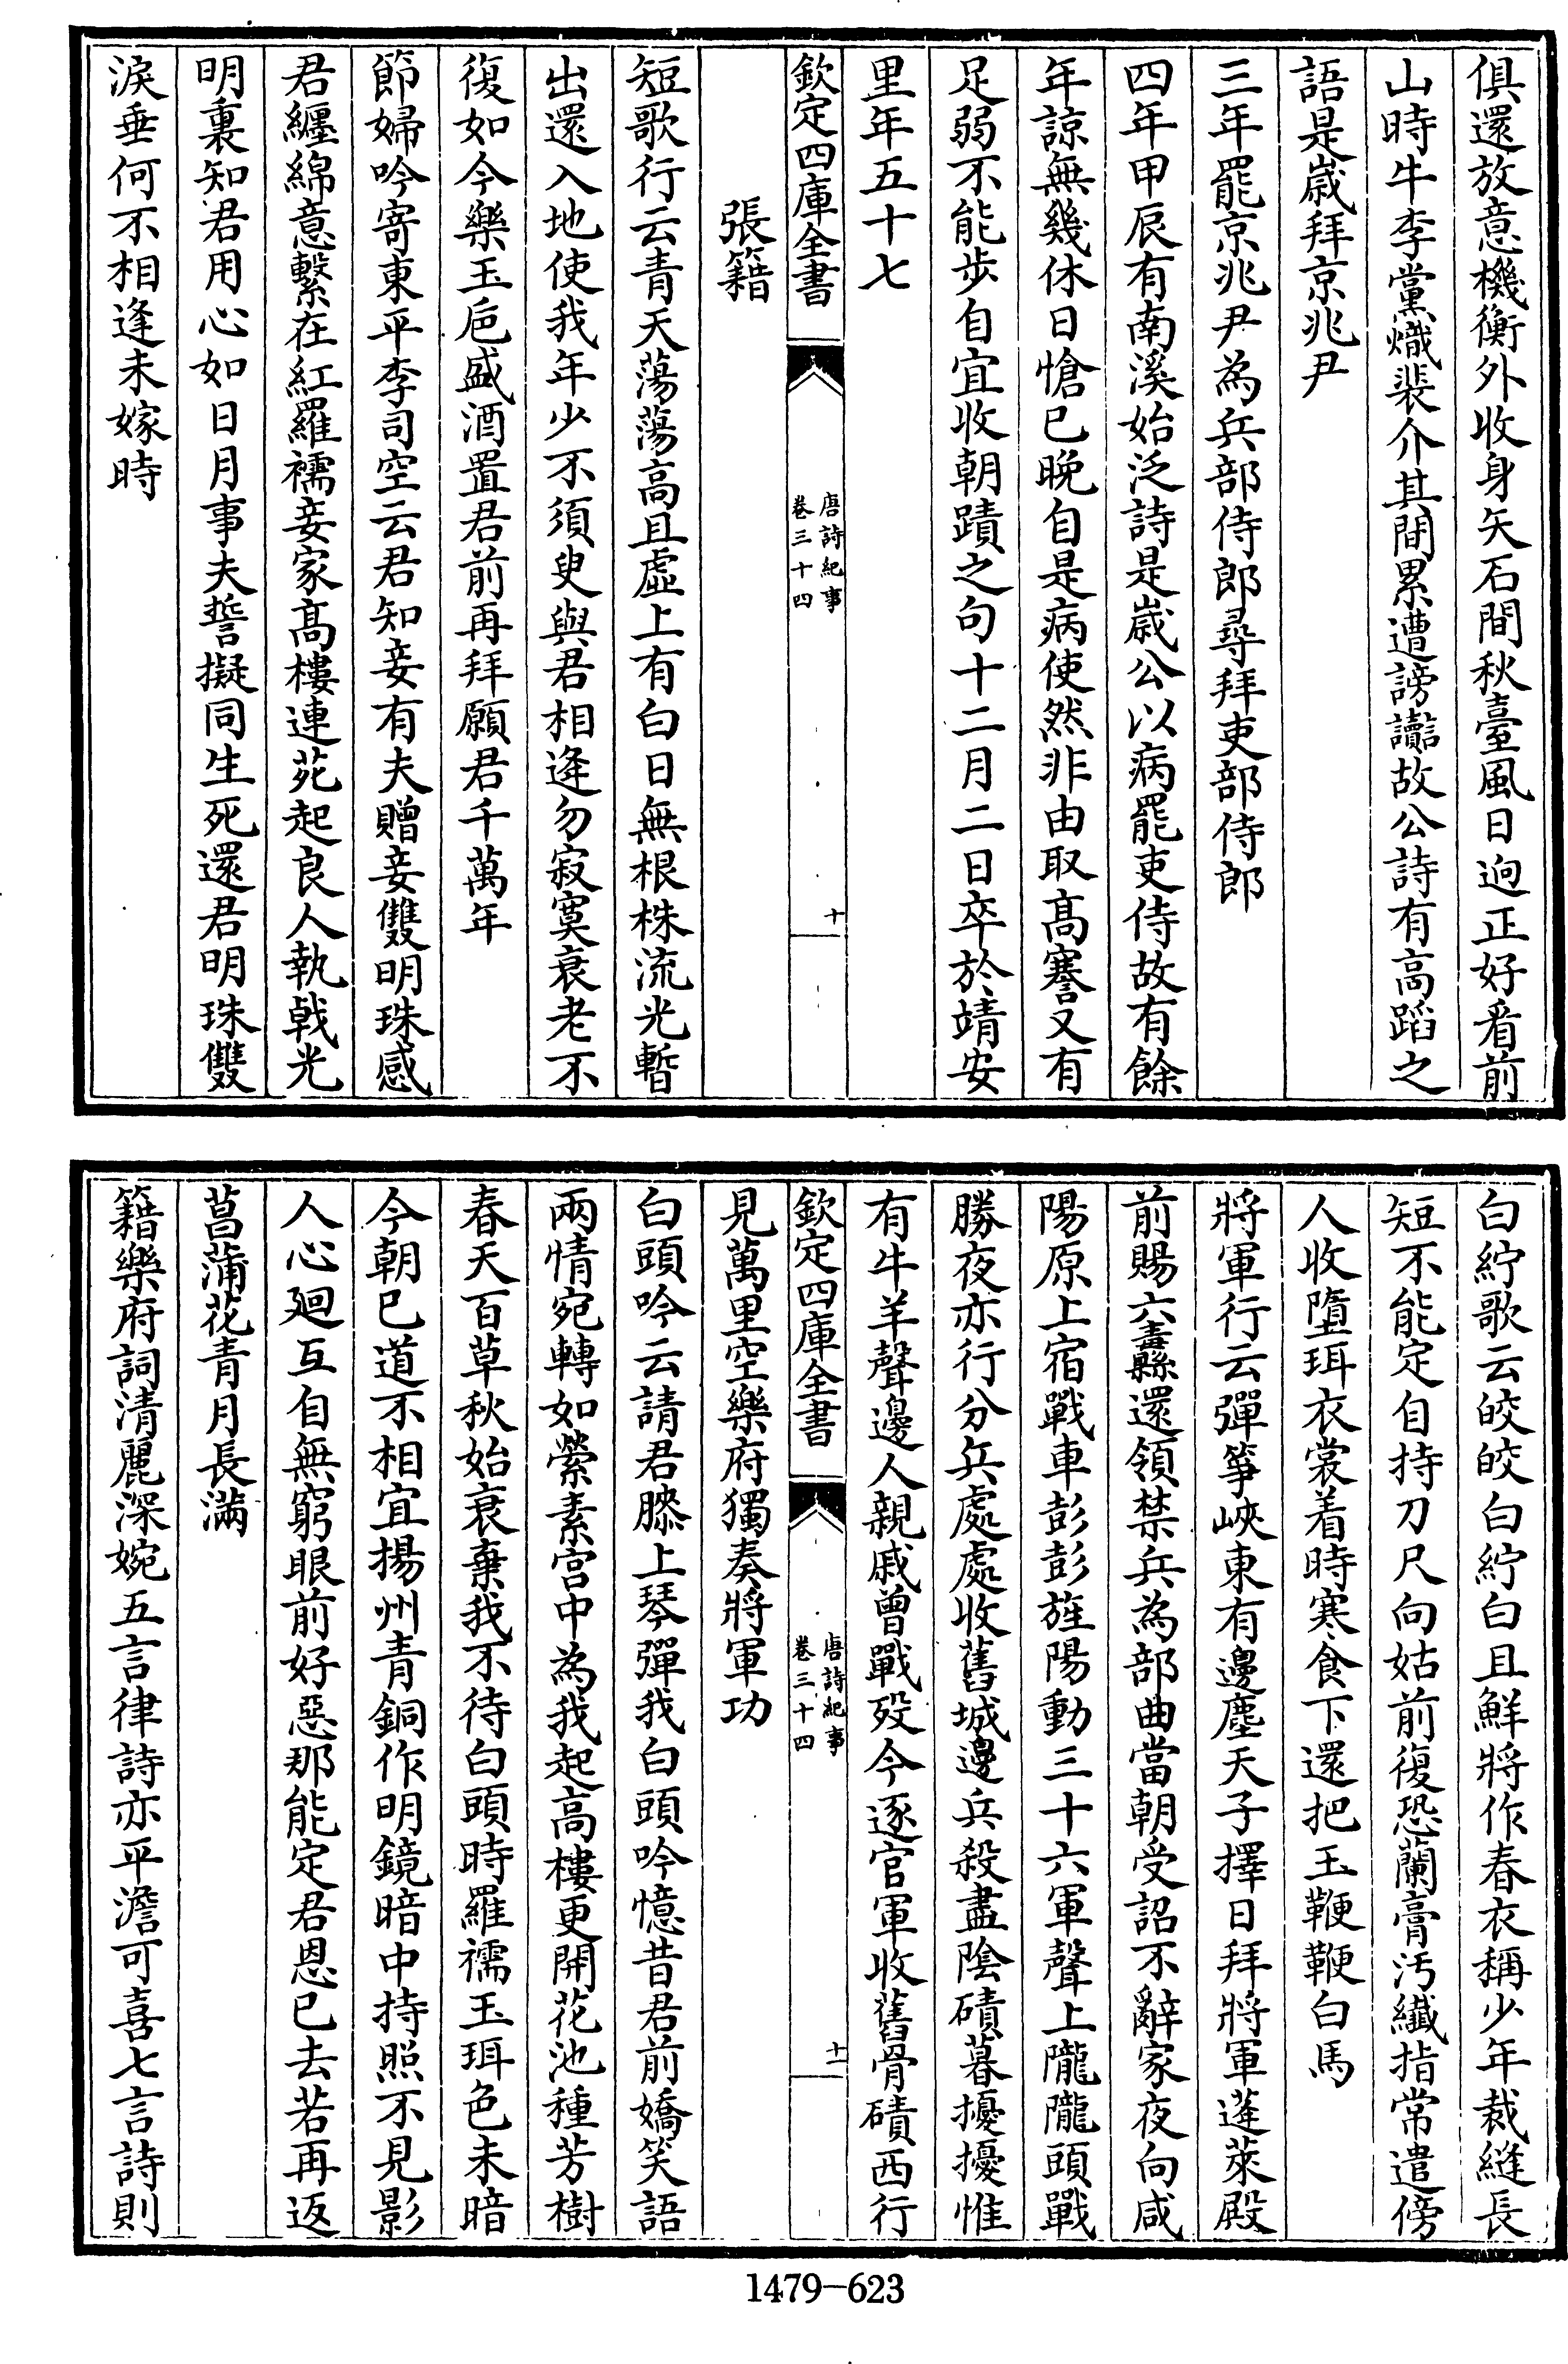 俱還放意機衡外收身矢石間秋臺風日迥正好看前
山時牛李黨熾裴介其間累遭謗讟故公詩有高蹈之
語是歲拜京兆尹
三年罷京兆尹為兵部侍郎尋拜吏部侍郎
四年甲辰有南溪始泛詩是歲公以病罷吏侍故有餘
年諒無幾休日愴已晚自是病使然非由取高騫又有
足弱不能步自宜收朝蹟之句十二月二日卒於靖安
里年五十七
欽定四庫全書
唐詩紀事
卷三十四
十
張籍
短歌行云青天蕩蕩高且虛上有白日無根株流光暫
出還入地使我年少不須臾與君相逢勿寂寞衰老不
復如今樂玉巵盛酒置君前再拜願君千萬年
節婦吟寄東平李司空云君知妾有夫贈妾雙明珠感
君纏綿意繫在紅羅襦妾家高樓連苑起良人執戟光
明裏知君用心如日月事夫誓擬同生死還君明珠雙
淚垂何不相逢未嫁時
白紵歌云皎皎白紵白且鮮將作春衣稱少年裁縫長
短不能定自持刀尺向姑前復恐蘭膏汚纖指常遣傍
人收墮珥衣裳着時寒食下還把玉鞭鞭白馬
將軍行云彈箏峽東有邊塵天子擇日拜將軍蓬萊殿
前賜六纛還領禁兵為部曲當朝受詔不辭家夜向咸
陽原上宿戰車彭彭旌陽動三十六軍聲上隴隴頭戰
勝夜亦行分兵處處收舊城邊兵殺盡陰磧暮擾擾惟
有牛羊聲邊人親戚曾戰歿今逐官軍收舊骨磧西行
欽定四庫全書
唐詩紀事
卷三十四
十一
見萬里空樂府獨奏將軍功
白頭吟云請君膝上琴彈我白頭吟憶昔君前嬌笑語
兩情宛轉如縈素宮中為我起高樓更開花池種芳樹
春天百草秋始衰棄我不待白頭時羅襦玉珥色未暗
今朝已道不相宜揚州青銅作明鏡暗中持照不見影
人心廻互自無窮眼前好惡那能定君恩已去若再返
菖蒲花青月長滿
籍樂府詞清麗深婉五言律詩亦平澹可喜七言詩則
1479-623